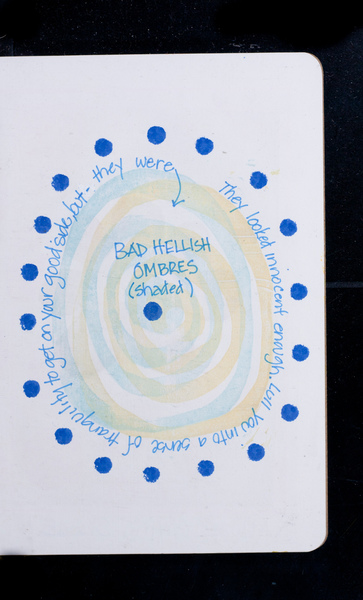 They looked innocent enough. Lull you into a sense of tranquility to get on your good side, but - they were
BAD HELLISH
OMBRES
(shaded)